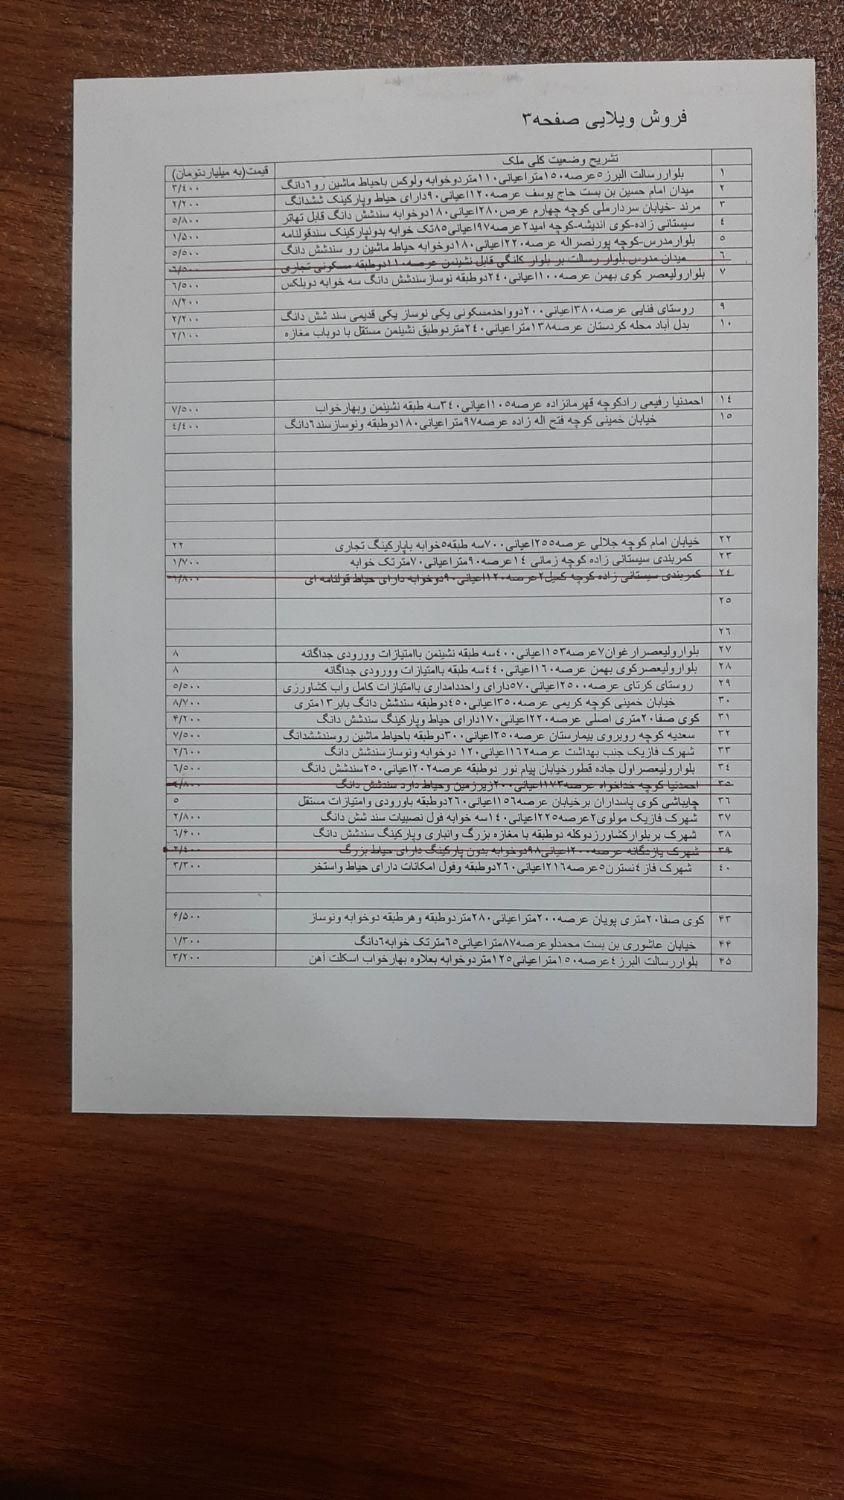 فروش ویلایی صفحه۳
تشریح وضعیت کلی ملک قیمت(به میلیاردتومان)
۱ بلواررسالت البرز۵عرصه۱۵۰متراعیانی۱۱۰متردوخوابه ولوکس باحیاط ماشین رو۶دانگ ۳/۴۰۰
۲ میدان امام حسین بن بست حاج یوسف عرصه۱۲۰اعیانی۹۰دارای حیاط وپارکینک ششدانگ ۲/۲۰۰
۳ مرند -خیابان سردارملی کوچه چهارم عرص۲۸۰اعیانی۱۸۰دوخوابه سندشش دانگ قابل تهاتر ۵/۸۰۰
۴ سیستانی زاده-کوی اندیشه-کوچه امید۲عرصه۹۷اعیانی۸۵تک خوابه بدونپارکینک سندقولنامه ۱/۵۰۰
۵ بلوارمدرس-کوچه پورنصراله عرصه۲۲۰اعیانی۱۸۰دوخوابه حیاط ماشین رو سندشش دانگ ۵/۵۰۰
۶ میدان مدرس بلوار رسالت بر بلوار کلنگی قابل نشیننمن عرصه۱۱۰دوطبقه مسکونی تجاری ۶/۵۰۰
۷ بلوارولیعصر کوی بهمن عرصه۱۰۰اعیانی۲۴۰دوطبقه نوسازسندشش دانگ سه خوابه دوبلکس ۶/۵۰۰
۸/۲۰۰
۹ روستای فنایی عرصه۳۸۰اعیانی۲۰۰دوواحدمسکونی یکی نوساز یکی قدیمی سند شش دانگ ۲/۲۰۰
۱۰ بدل آباد محله کردستان عرصه۱۳۸متراعیانی۲۴۰متردوطبق نشینمن مستقل با دوباب مغازه ۲/۱۰۰
۱۴ احمدنیا رفیعی رادکوچه قهرمانزاده عرصه۱۰۵اعیانی۳۴۰سه طبقه نشینمن وبهارخواب ۷/۵۰۰
۱۵ خیابان خمینی کوچه فتح اله زاده عرصه۹۷متراعیانی۱۸۰دوطبقه ونوسازسند۶دانگ ۴/۴۰۰
۲۲ خیابان امام کوچه جلالی عرصه۲۵۵اعیانی۷۰۰سه طبقه۵خوابه باپارکینگ تجاری ۲۲
۲۳ کمربندی سیستانی زاده کوچه زمانی ۱۴عرصه۹۰متراعیانی۷۰مترتک خوابه ۱/۷۰۰
۲۴ کمربندی سیستانی زاده کوچه کمیل۲عرصه۱۲۰اعیانی۹۰دوخوابه دارای حیاط قولنامه ای ۱/۸۰۰
۲۵
۲۶
۲۷ بلوارولیعصرارغوان۷عرصه۱۵۳اعیانی۴۰۰سه طبقه نشینمن باامتیازات وورودی جداگانه ۸
۲۸ بلوارولیعصرکوی بهمن عرصه۱۶۰اعیانی۴۴۰سه طبقه باامتیازات وورودی جداگانه ۸
۲۹ روستای کرتای عرصه۲۵۰۰اعیانی۵۷۰دارای واحددامداری باامتیازات کامل واب کشاورزی ۵/۵۰۰
۳۰ خیابان خمینی کوچه کریمی عرصه۳۵۰اعیانی۴۵۰دوطبقه سندشش دانگ بابر۱۳متری ۸/۷۰۰
۳۱ کوی صفا۲۰متری اصلی عرصه۲۲۰اعیانی۱۷۰دارای حیاط وپارکینگ سندشش دانگ ۴/۲۰۰
۳۲ سعدیه کوچه روبروی بیمارستان عرصه۲۵۰اعیانی۳۰۰دوطبقه باحیاط ماشین روسندششدانگ ۷/۵۰۰
۳۳ شهرک فازیک جنب بهداشت عرصه۱۶۲اعیانی۱۲۰ دوخوابه ونوسازسندشش دانگ ۲/۶۰۰
۳۴ بلوارولیعصراول جاده قطورخیابان پیام نور دوطبقه عرصه۲۰۲اعیانی۲۵۰سندشش دانگ ۶/۵۰۰
۳۵ احمدنیا کوچه خداخواه عرصه۱۷۳اعیانی۲۰۰زیرزمین وحیاط دارد سندشش دانگ ۴/۸۰۰
۳۶ چایباشی کوی پاسداران برخیابان عرصه۱۵۶اعیانی۲۶۰دوطبقه باورودی وامتیازات مستقل ۵
۳۷ شهرک فازیک مولوی۲عرصه۲۲۵اعیانی۱۴۰سه خوابه فول نصبیات سند شش دانگ ۲/۸۰۰
۳۸ شهرک بربلوارکشاورزدوکله دوطبقه با مغازه بزرگ وانباری وپارکینگ سندشش دانگ ۶/۶۰۰
۳۹ شهرک یازدگانه عرصه۲۰۰اعیانی۹۸دوخوابه بدون پارکینگ دارای حیاط بزرگ ۲/۴۰۰
۴۰ شهرک فاز۴نسترن۵عرصه۲۱۶اعیانی۲۶۰دوطبقه وفول امکانات دارای حیاط واستخر ۳/۳۰۰
۴۳ کوی صفا۲۰متری پویان عرصه۲۰۰متراعیانی۲۸۰متردوطبقه وهرطبقه دوخوابه ونوساز ۶/۵۰۰
۴۴ خیابان عاشوری بن بست محمدلوعرصه۸۷متراعیانی۶۵مترتک خوابه۶دانگ ۱/۳۰۰
۴۵ بلواررسالت البرز۴عرصه۱۵۰متراعیانی۱۲۵متردوخوابه بعلاوه بهارخواب اسکلت آهن ۳/۲۰۰